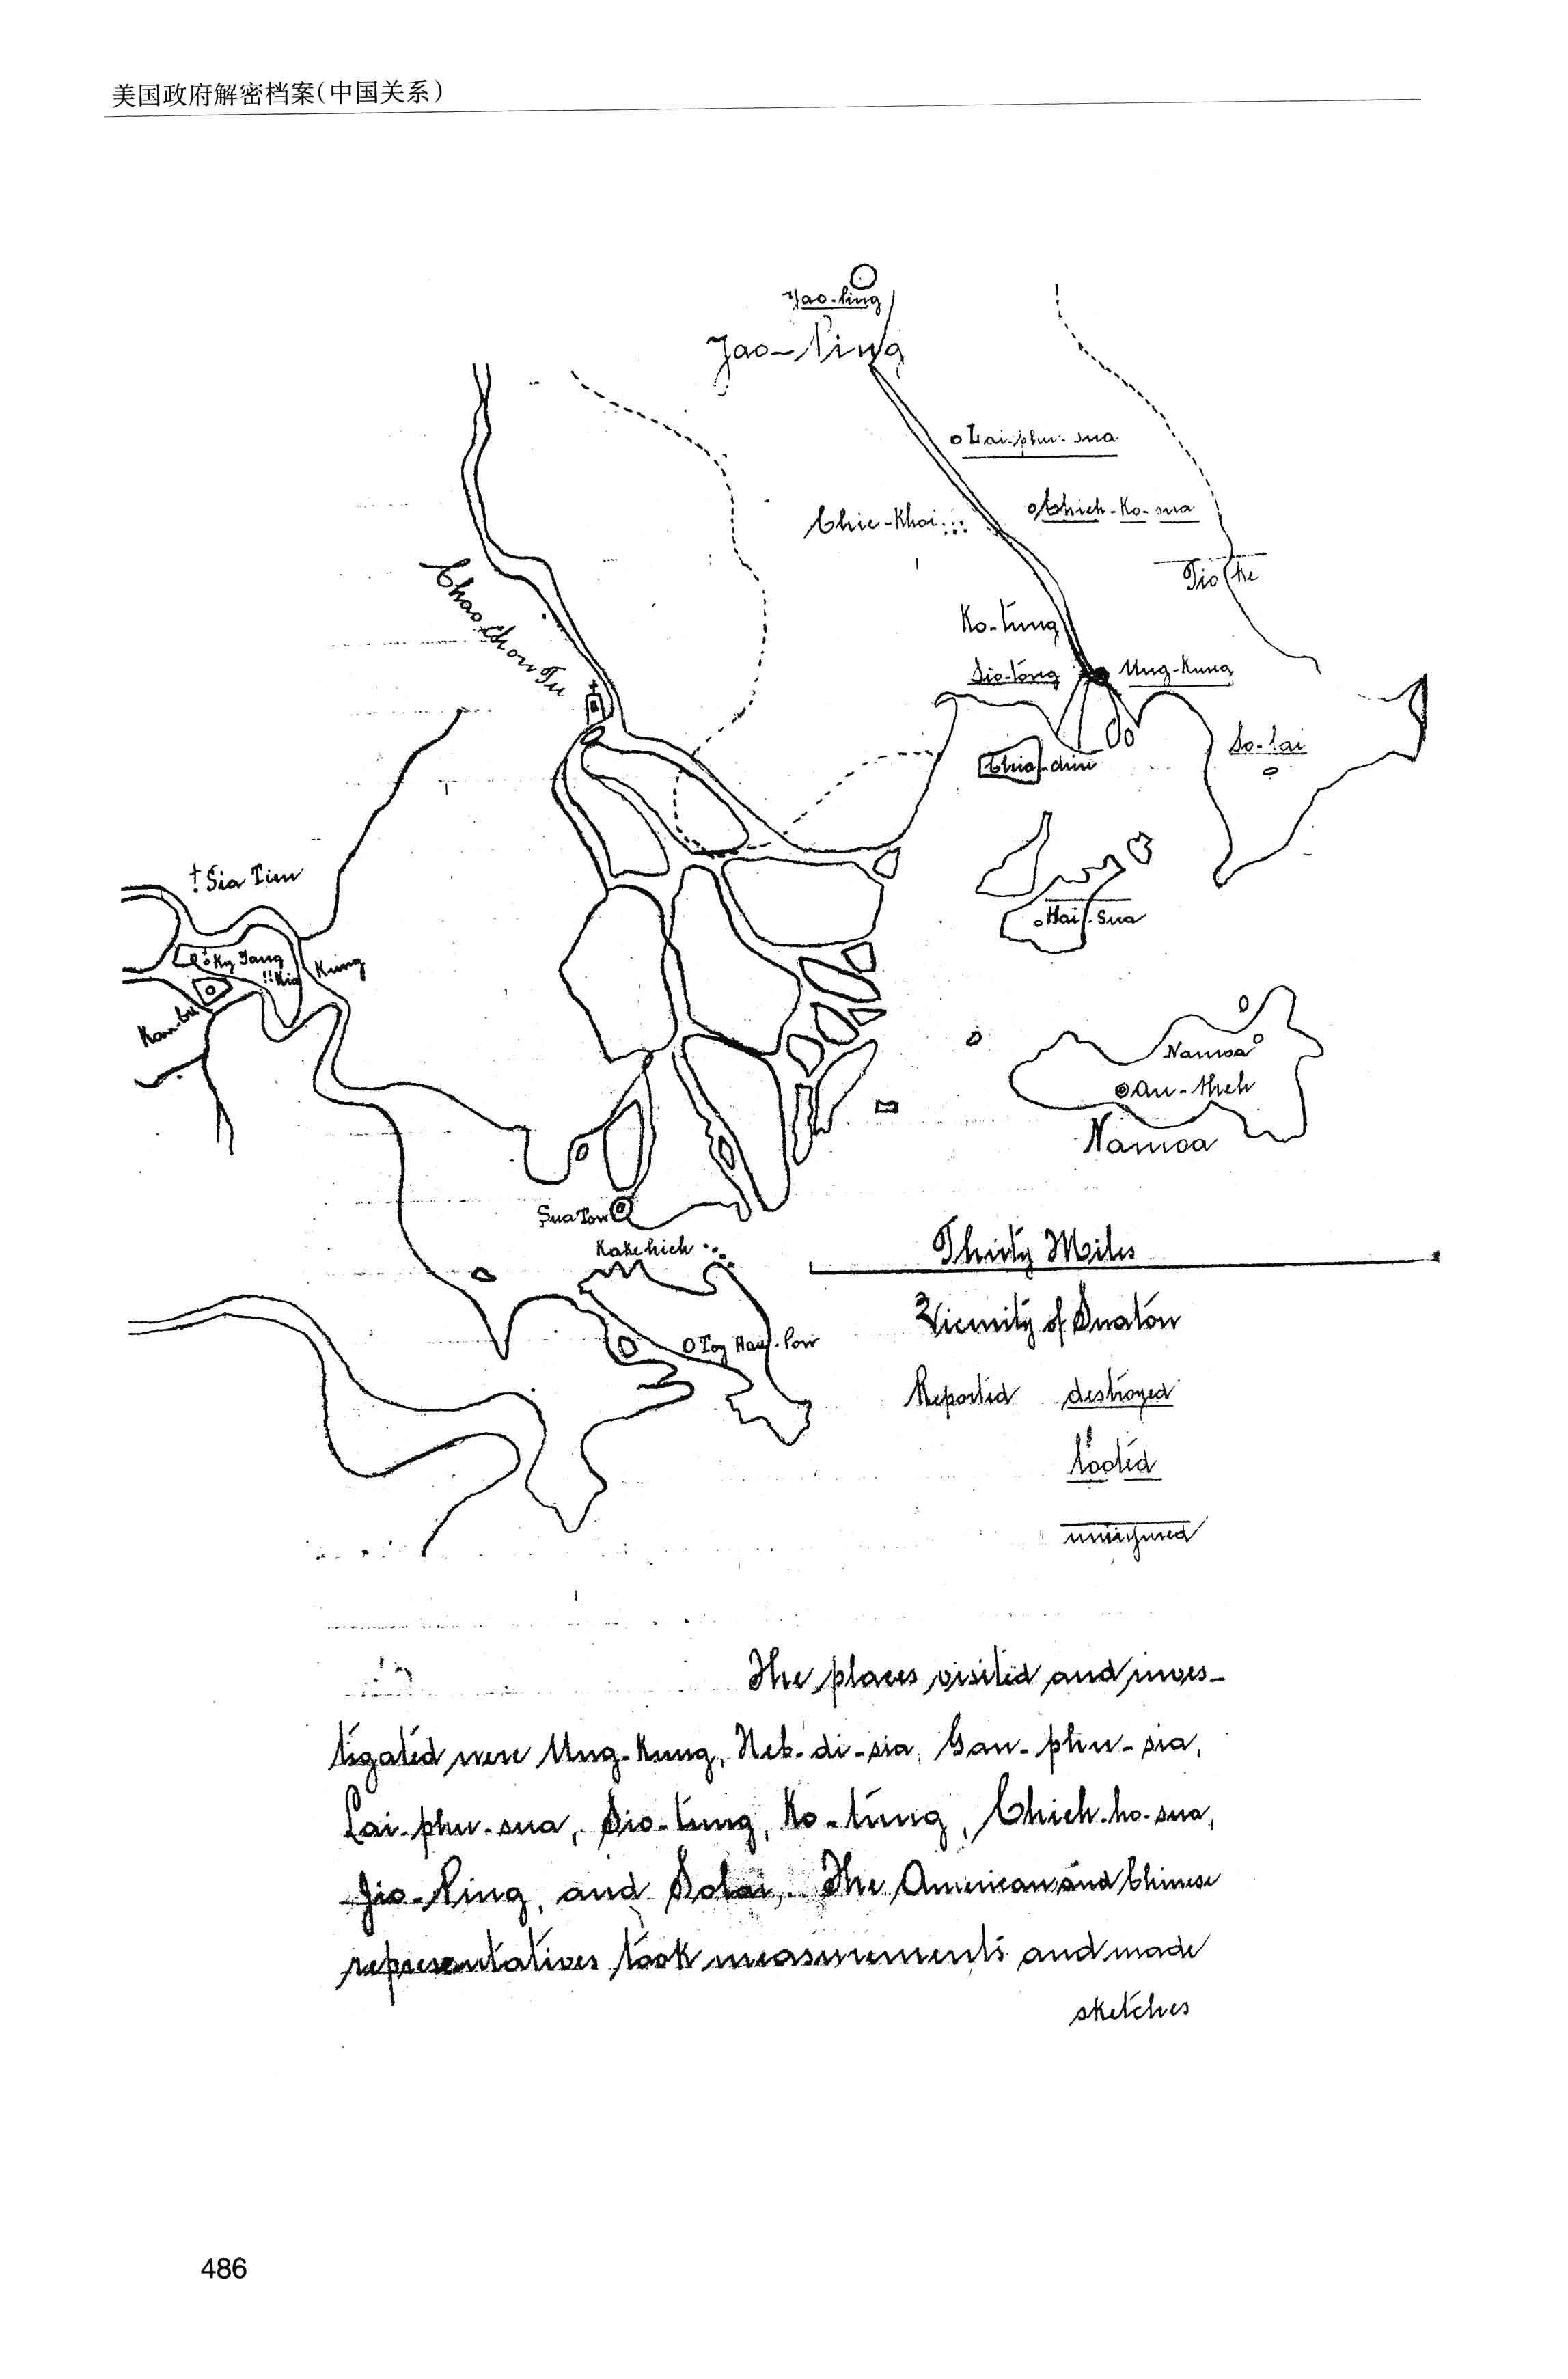 美国政府解密档案(中国关系)
Yao-ling
Jao-Ping
Lai-phu-sua
Chie-Khoi
Chich-Ko-sua
Tio Ke
Chao Chow Fu
Ko-tung
Sio-tong
Ung-Kung
So-lai
Chia-chiu
Sia Tien
Hai-Sua
Ky Yang
Kia
Kung
Kan-bu
Namoa
Au-theh
Namoa
SuaTow
Kakchich
Thirty Miles
Vicinity of Suatow
Toy Hau-Pow
Reported destroyed
looted
uninjured
The places visited and inves-
tigated were Ung-Kung, Neb-di-sia, Gan-phu-sia,
Lai-phu-sua, Sio-tung, Ko-tung, Chich-ho-sua,
Jio-Ping, and Solai. The American and Chinese
representatives took measurements and made
sketches
486